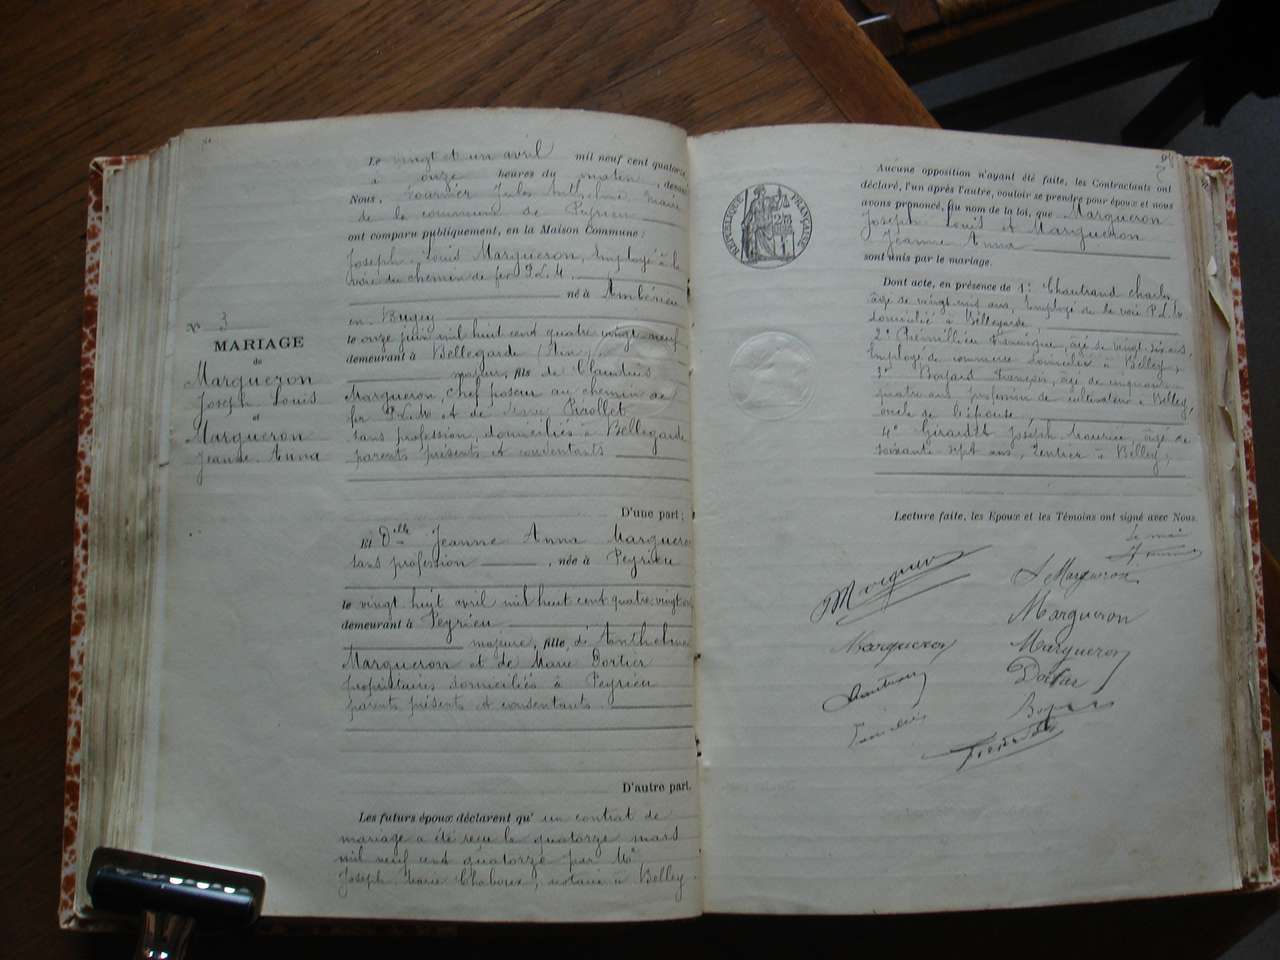 Le vingt et un avril mil neuf cent quatorze,
à onze heures du matin, devant
Nous, Fournier Jules Anthelme Maire
de la commune de Peyrieu
ont comparu publiquement, en la Maison Commune :
Joseph Louis Margueron, Employé à la
voie du chemin de fer P.L.M.
né à Ambérieu
en Bugey
le onze juin mil huit cent quatre vingt neuf
demeurant à Bellegarde (Ain)
majeur, fils de Claudius
Margueron, chef poseur au chemin de
fer P.L.M. et de Pirollet
sans profession, domiciliés à Bellegarde
parents présents et consentants
D'une part ;
N° 3
MARIAGE
de
Margueron
Joseph Louis
et
Margueron
Jeanne Anna
Et Dlle Jeanne Anna Margueron
sans profession, née à Peyrieu
le vingt huit avril mil huit cent quatre-vingt
demeurant à Peyrieu
majeure, fille, d'Anthelme
Margueron et de Marie Dortier
propriétaires domiciliés à Peyrieu
parents présents et consentants.
D'autre part.
Les futurs époux déclarent qu'un contrat de
mariage a été reçu le quatorze mars
mil neuf cent quatorze par Me
Joseph Marie Chaboux, notaire à Belley
RÉPUBLIQUE FRANÇAISE
Aucune opposition n'ayant été faite, les Contractants ont
déclaré, l'un après l'autre, vouloir se prendre pour époux et nous
avons prononcé, au nom de la loi, que Margueron
Joseph Louis et Margueron
Jeanne Anna
sont unis par le mariage.
Dont acte, en présence de 1° Chautrand Charles
âgé de vingt-neuf ans, Employé de la voie P.L.M.
domicilié à Bellegarde
2° Prémillieu Francisque, âgé de vingt six ans,
Employé de commerce domicilié à Belley,
3° François, âgé de cinquante
quatre ans profession de cultivateur à Belley,
oncle de l'épouse
4° Girardet Joseph Maurice, âgé de
soixante-sept ans, rentier à Belley,
Lecture faite, les Epoux et les Témoins ont signé avec Nous.
Margueron
J Margueron
Margueron
Margueron
Margueron